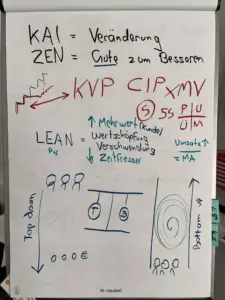 KAI = Veränderung
ZEN = Gute zum Besseren
KVP CIP XMV
S 5S P U
Ü M
↑ Mehrwert (Kunde)
LEAN = Wertschöpfung
Verschwendung
↓ Zeitfresser
Umsatz ↑
= MA
Top down
T
S
Bottom up